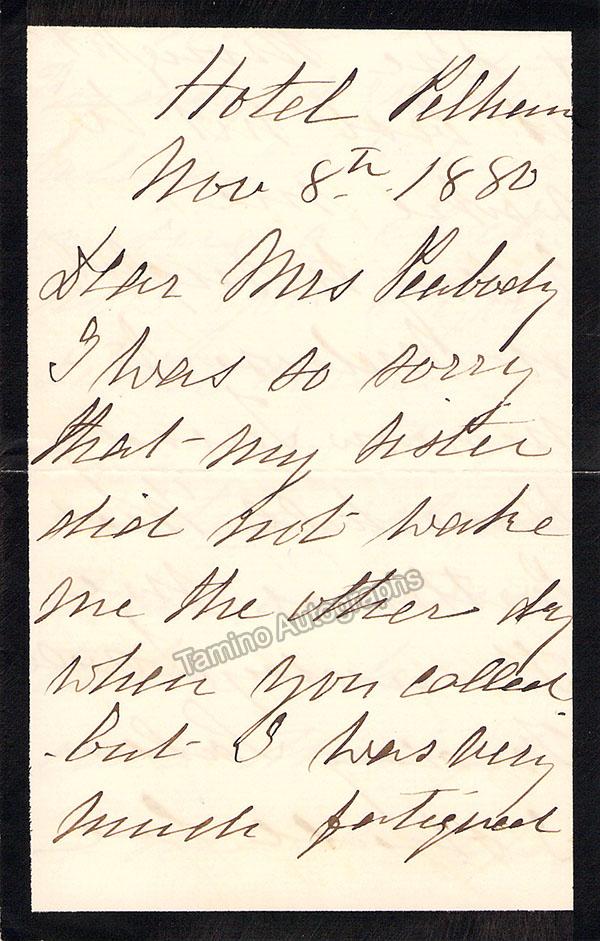 Hotel Pelham
Nov 8th 1880
Dear Mrs Peabody
I was so sorry
that my sister
did not wake
me the other day
when you called
but I was very
much fatigued
Tamino Autographs